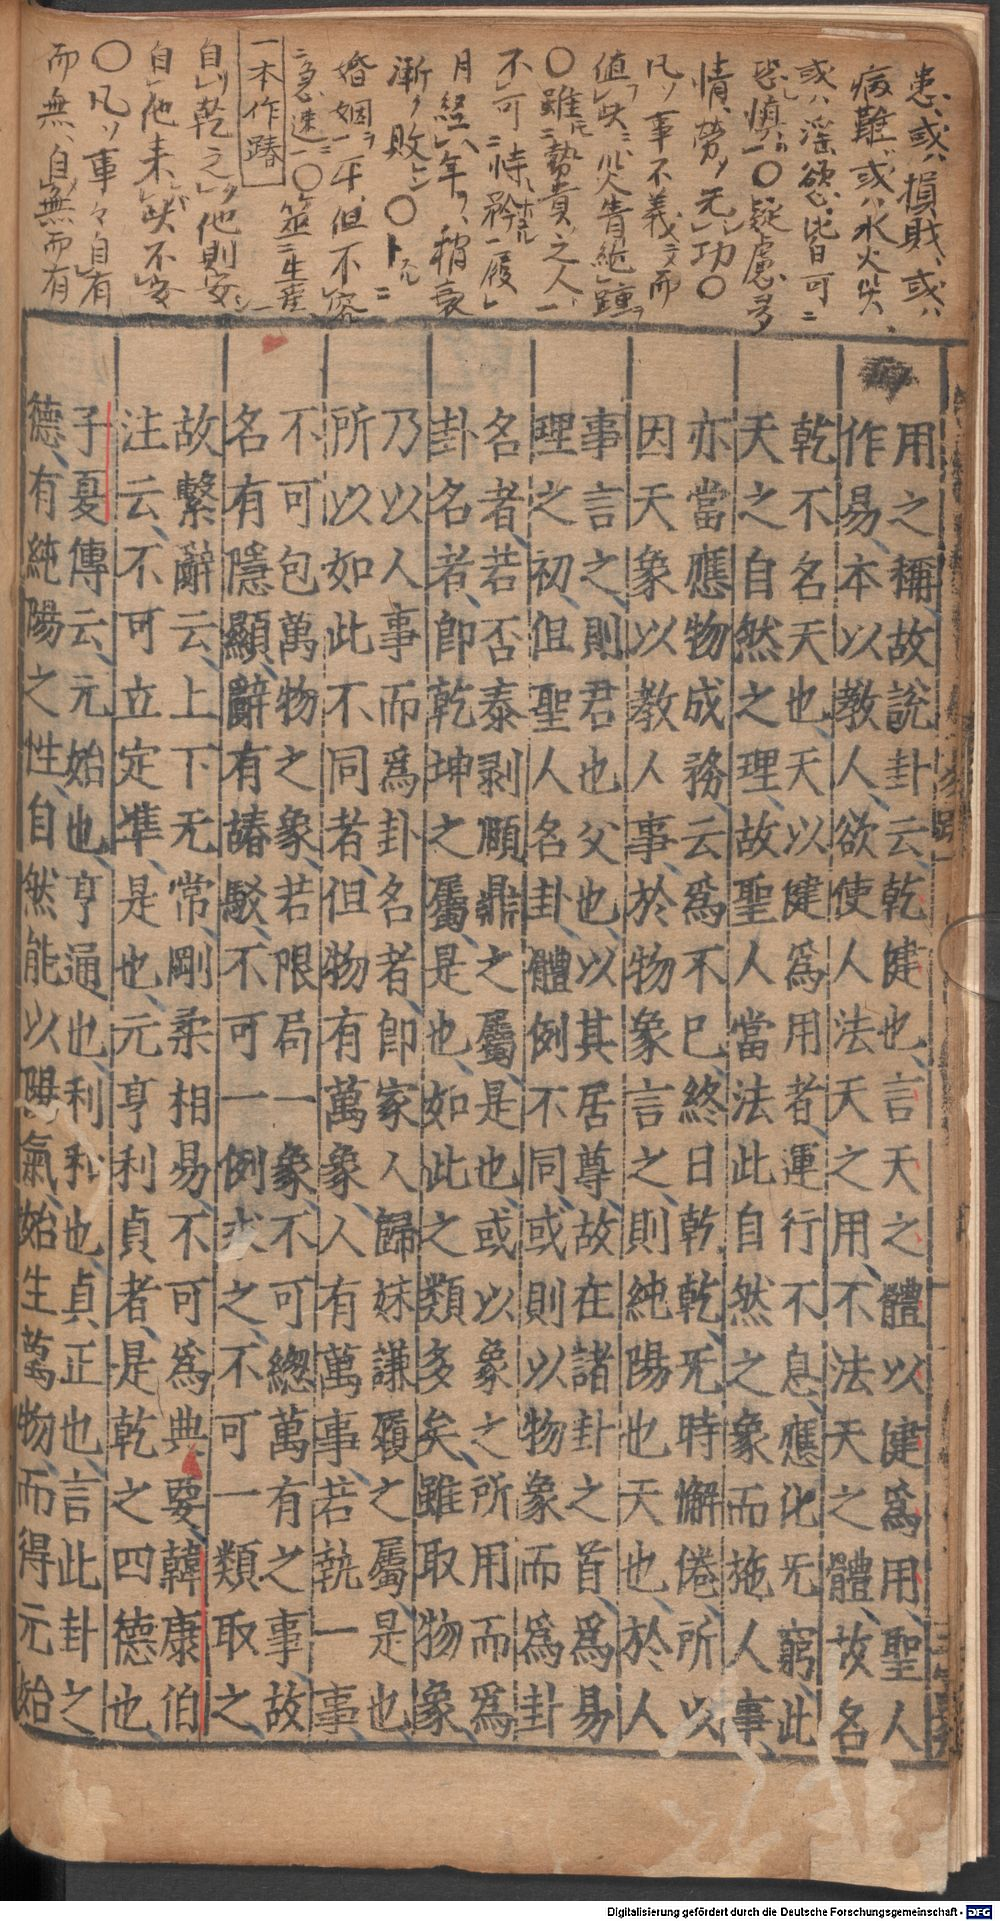 患、或ハ損財、或ハ
病難、或ハ水火失、
或ハ淫欲、皆可ニ
恐慎一〇疑慮多
情、勞シ無功〇
凡ソ事不義ニ〆而
値フ缺ニ火昔絶踵ヲ
〇雖ニ勢貴之人一
不可ニ恃ホコル矜一履
月經八年ヲ、稍衰
漸ク敗ヒン〇トルニ
婚姻ヲ一平、但不容
ニ急速一〇筮ニ生産
一本作踳
自リ乾之ク他則安シ
自他来バ缺不安
〇凡ソ事々自有
而無、自無而有
用之稱故說卦云乾健也言天之體以健爲用聖人
作易本以教人欲使人法天之用不法天之體故名
乾不名天也天以健爲用者運行不息應化无窮此
天之自然之理故聖人當法此自然之象而施人事
亦當應物成務云爲不已終日乾乾无時懈倦所以
因天象以教人事於物象言之則純陽也天也於人
事言之則君也父也以其居尊故在諸卦之首爲易
理之初但聖人名卦體例不同或則以物象而爲卦
名者若否泰剥頤鼎之屬是也或以象之所用而爲
卦名者即乾坤之屬是也如此之類多矣雖取物象
乃以人事而爲卦名者即家人歸妹謙履之屬是也
所以如此不同者但物有萬象人有萬事若執一事
不可包萬物之象若限局一象不可緫萬有之事故
名有隱顯辭有踳駁不可一例求之不可一類取之
故繫辭云上下无常剛柔相易不可爲典要韓康伯
注云不可立定準是也元亨利貞者是乾之四德也
子夏傳云元始也亨通也利和也貞正也言此卦之
德有純陽之性自然能以陽氣始生萬物而得元始
Digitalisierung gefördert durch die Deutsche Forschungsgemeinschaft - DFG